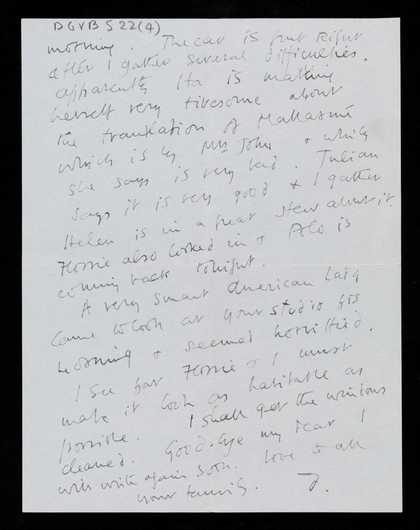 DGVB S 22(4)
morning. The car is put right
after I gather several difficulties.
apparently Ita is making
herself very tiresome about
the translation of Mallarmé
which is by Mrs John & which
she says is very bad. Julian
says it is very good & I gather
Helen is in a great stew about it.
Flossie also looked in & Polo is
coming back tonight.
A very smart American lady
came to look at your studio this
morning & seemed horrified.
I see that Flossie & I must
make it look as habitable as
possible. I shall get the windows
cleaned. Good-bye my dear I
will write again soon. Love to all
your family.